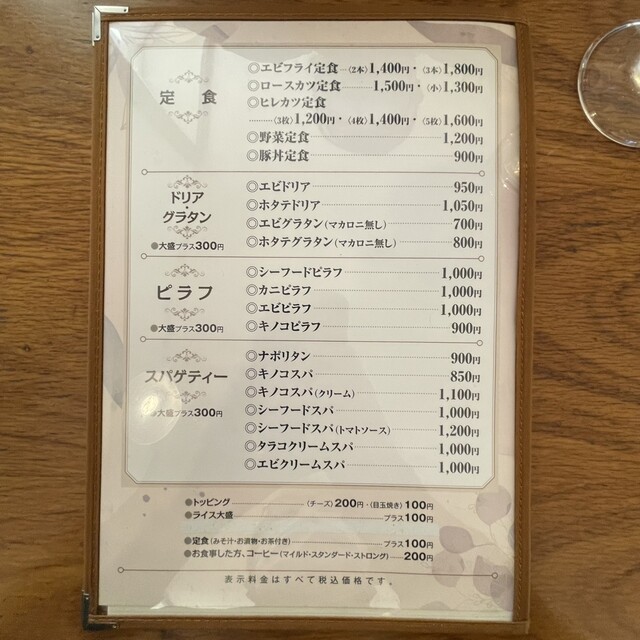 定食
◎エビフライ定食…〈2本〉1,400円・〈3本〉1,800円
◎ロースカツ定食………1,500円・〈小〉1,300円
◎ヒレカツ定食
………〈3枚〉1,200円・〈4枚〉1,400円・〈5枚〉1,600円
◎野菜定食………1,200円
◎豚丼定食………900円
ドリア
・
グラタン
●大盛プラス300円
◎エビドリア………950円
◎ホタテドリア………1,050円
◎エビグラタン(マカロニ無し)………700円
◎ホタテグラタン(マカロニ無し)………800円
ピラフ
●大盛プラス300円
◎シーフードピラフ………1,000円
◎カニピラフ………1,000円
◎エビピラフ………1,000円
◎キノコピラフ………900円
スパゲティー
●大盛プラス300円
◎ナポリタン………900円
◎キノコスパ………850円
◎キノコスパ(クリーム)………1,100円
◎シーフードスパ………1,000円
◎シーフードスパ(トマトソース)………1,200円
◎タラコクリームスパ………1,000円
◎エビクリームスパ………1,000円
●トッピング………(チーズ)200円・(目玉焼き)100円
●ライス大盛………プラス100円
●定食(みそ汁・お漬物・お茶付き)………プラス100円
●お食事した方、コーヒー(マイルド・スタンダード・ストロング)………200円
表示料金はすべて税込価格です。